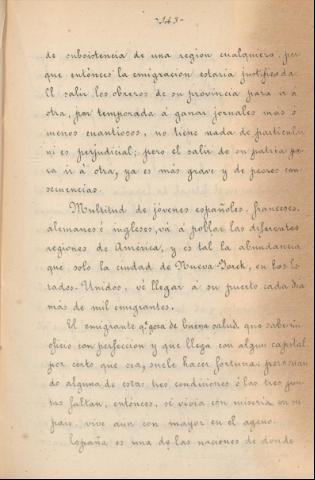 -243-
de subsistencia de una region cualquiera, por
que entónces la emigracion estaria justificada
El salir los obreros de su provincia para ir á
otra, por temporada á ganar jornales mas ó
menos cuantiosos, no tiene nada de particular
ni es perjudicial; pero el salir de su patria pa-
ra ir á otra, ya es más grave y de peores con
secuencias.
Multitud de jóvenes españoles, franceses,
alemanes é ingleses, vá á poblar las diferentes
regiones de América, y es tal la abundancia
que solo la ciudad de Nueva-Yorck, en los Es-
tados-Unidos, vé llegar á su puerto cada dia
más de mil emigrantes.
El emigrante q.e goza de buena salud, que sabe un
oficio con perfeccion y que llega con algun capital
por corto que sea, suele hacer fortuna; pero cuan
do alguna de estas tres condiciones ó las tres jun-
tas faltan, entónces, si vivia con miseria en su
pais, vive aun con mayor en el ageno.
España es una de las naciones de donde